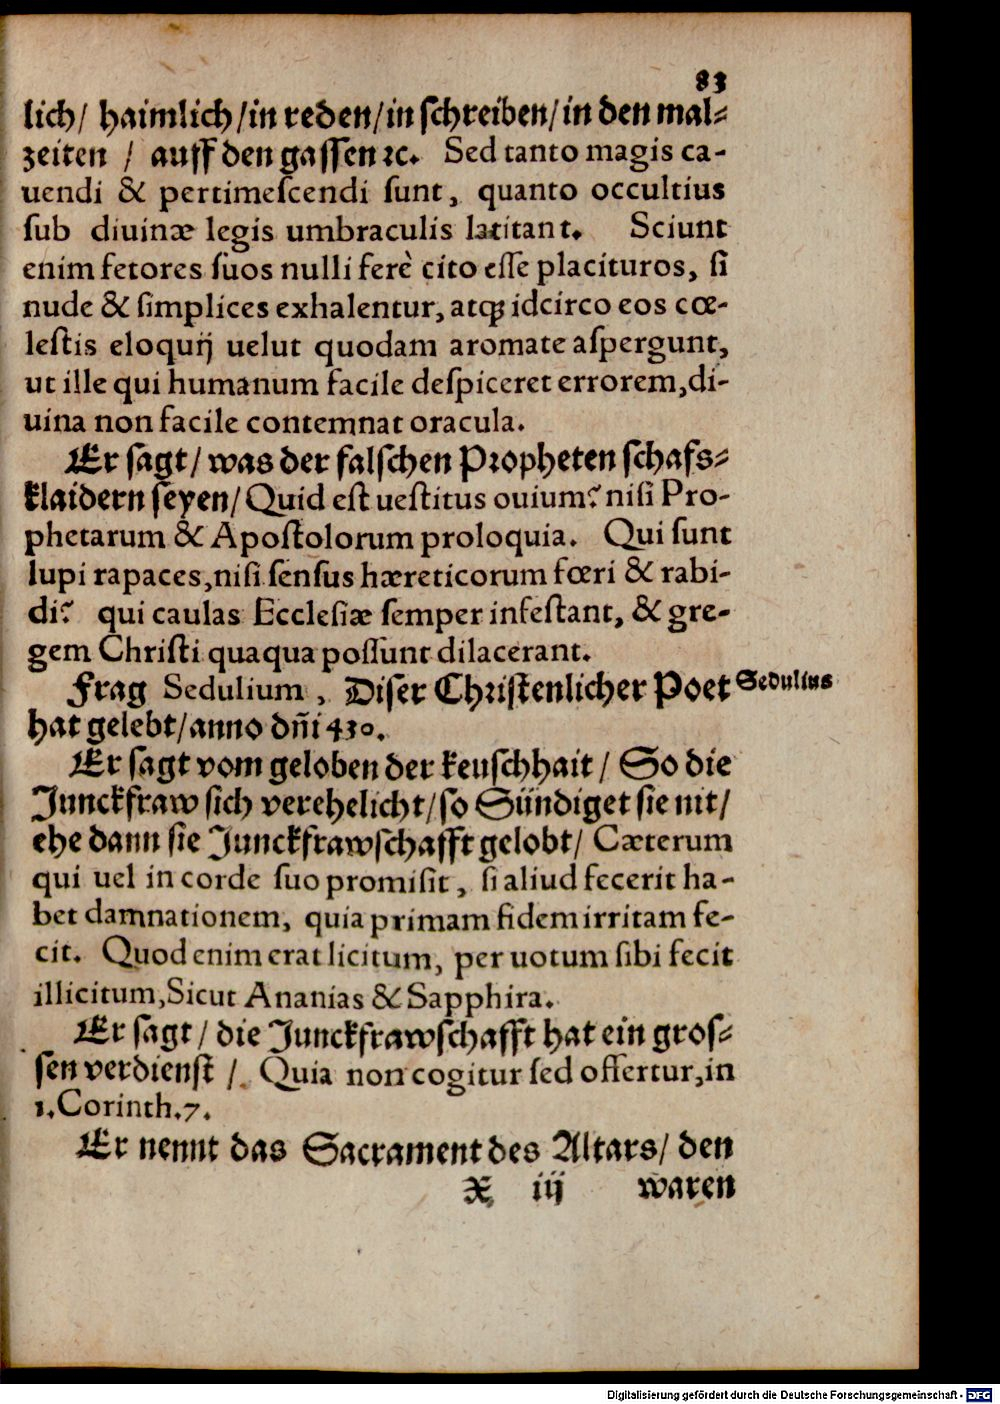 83
lich/ haimlich/in reden/in schreiben/in den mal-
zeiten / auff den gassen ꝛc. Sed tanto magis ca-
uendi & pertimeſcendi ſunt, quanto occultius
ſub diuinæ legis umbraculis latitant. Sciunt
enim fetores ſuos nulli ferè cito eſſe placituros, ſi
nude & ſimplices exhalentur, atq; idcirco eos cœ-
leſtis eloquij uelut quodam aromate aſpergunt,
ut ille qui humanum facile deſpiceret errorem,di-
uina non facile contemnat oracula.
Er ſagt/ was der falſchen Propheten ſchafs-
klaidern ſeyen/ Quid eſt ueſtitus ouium? niſi Pro-
phetarum & Apoſtolorum proloquia. Qui ſunt
lupi rapaces,niſi ſenſus hæreticorum fœri & rabi-
di? qui caulas Eccleſiæ ſemper infeſtant, & gre-
gem Chriſti quaqua poſſunt dilacerant.
Frag Sedulium, Diſer Chriſtenlicher Poet Sedulius
hat gelebt/anno dñi 430.
Er ſagt vom geloben der keuſchhait / So die
Junckfraw ſich verehelicht/ſo Sündiget ſie nit/
ehe dann ſie Junckfrawſchafft gelobt/ Cæterum
qui uel in corde ſuo promiſit, ſi aliud fecerit ha-
bet damnationem, quia primam fidem irritam fe-
cit. Quod enim erat licitum, per uotum ſibi fecit
illicitum,Sicut Ananias & Sapphira.
Er ſagt/ die Junckfrawſchafft hat ein groſ-
ſen verdienſt /. Quia non cogitur ſed offertur,in
1.Corinth.7.
Er nennt das Sacrament des Altars/ den
X iij waren
Digitalisierung gefördert durch die Deutsche Forschungsgemeinschaft - DFG